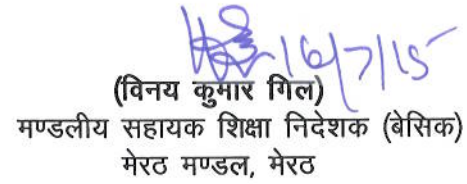 16/7/15
(विनय कुमार गिल)
मण्डलीय सहायक शिक्षा निदेशक (बेसिक)
मेरठ मण्डल, मेरठ